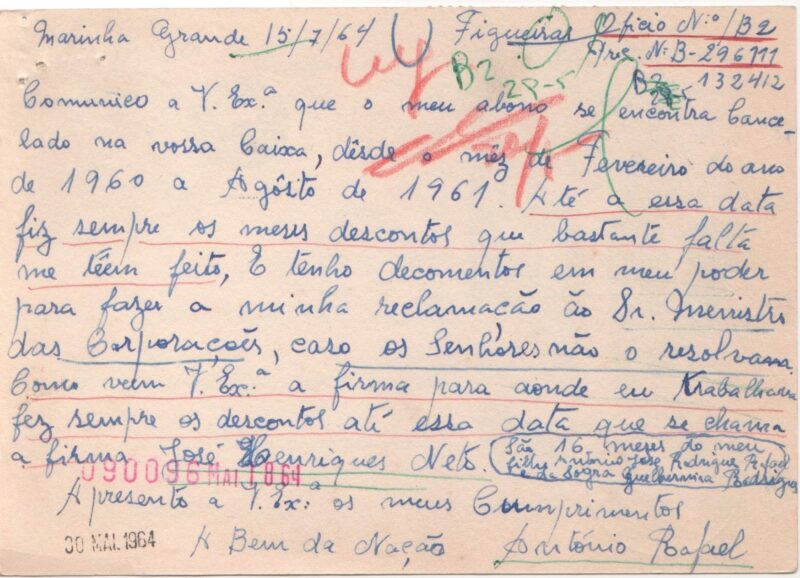 Marinha Grande 15/7/64 Figueiras Oficio N:º/B2
N:B-296111
B2 28-5 B2 132412
Comunico a V. Ex.ª que o meu abono se encontra cance-
lado na vossa Caixa, dêsde o mêz de Fevereiro do ano
de 1960 a Agôsto de 1961. Até a essa data
fiz sempre os meses descontos que bastante falta
me têem feito, E tenho decomentos em meu poder
para fazer a minha reclamação ão Sr. Menristro
das Corporações, caso os Senhores não o resolvam.
Como vem V. Ex.ª a firma para aonde eu trabalhava
fez sempre os descontos até essa data que se chama
a firma José Henriques Neto.
São 16 meses do meu
filho António José Rodrigue Rafael
e da Sogra Guelhermina Rodrigues
090096 MAI 18 64
Apresento a V. Ex.ª os meus Cumprimentos
30 MAI. 1964
A Bem da Nação António Rafael